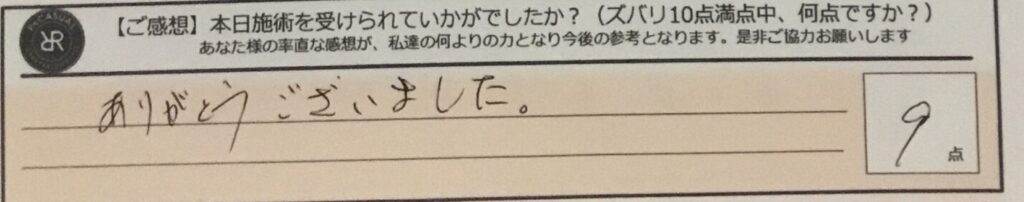 【ご感想】本日施術を受けられていかがでしたか？（ズバリ10点満点中、何点ですか？）
あなた様の率直な感想が、私達の何よりの力となり今後の参考となります。是非ご協力お願いします
ありがとうございました。
9点